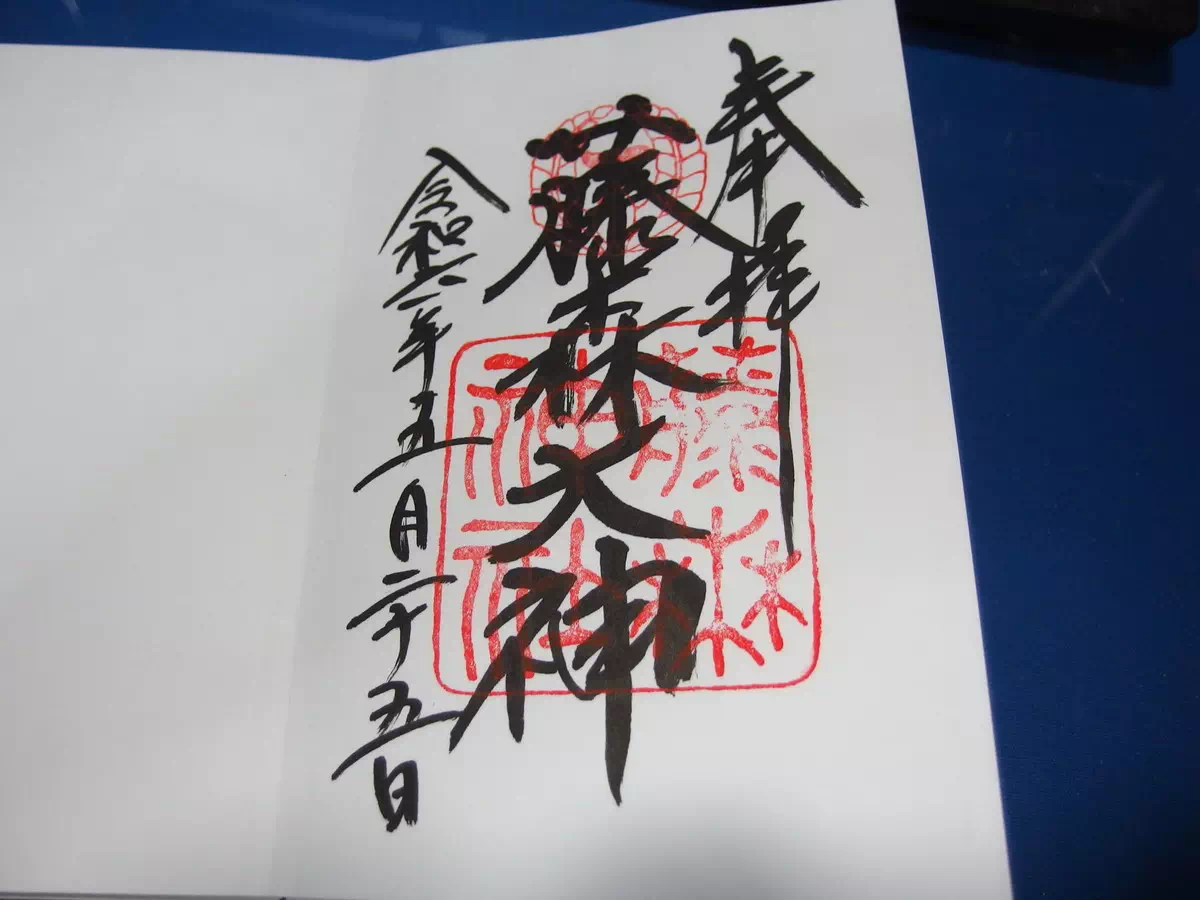 奉拝
藤森大神
令和六年五月二十五日
藤森
神社